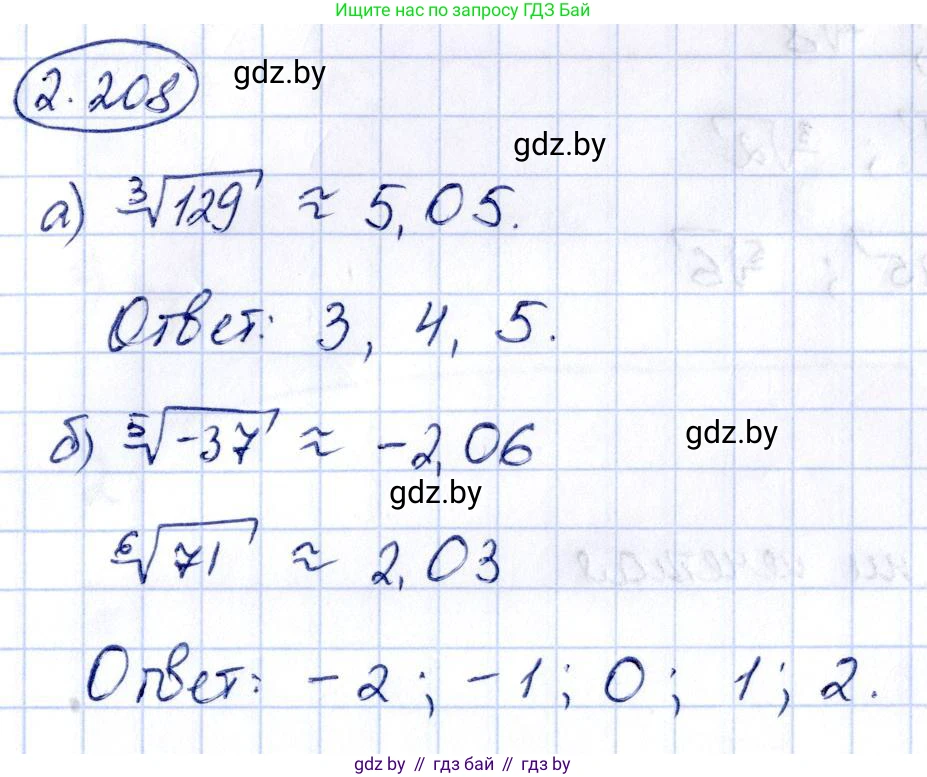 Ищите нас по запросу ГДЗ Бай
2.208 gdz.by
gdz.by
а) ∛129 ≈ 5,05.
Ответ: 3, 4, 5.
б) ⁵√-37 ≈ -2,06 gdz.by
gdz.by
⁶√71 ≈ 2,03
Ответ: -2; -1; 0; 1; 2.
gdz.by // гдз бай // gdz.by